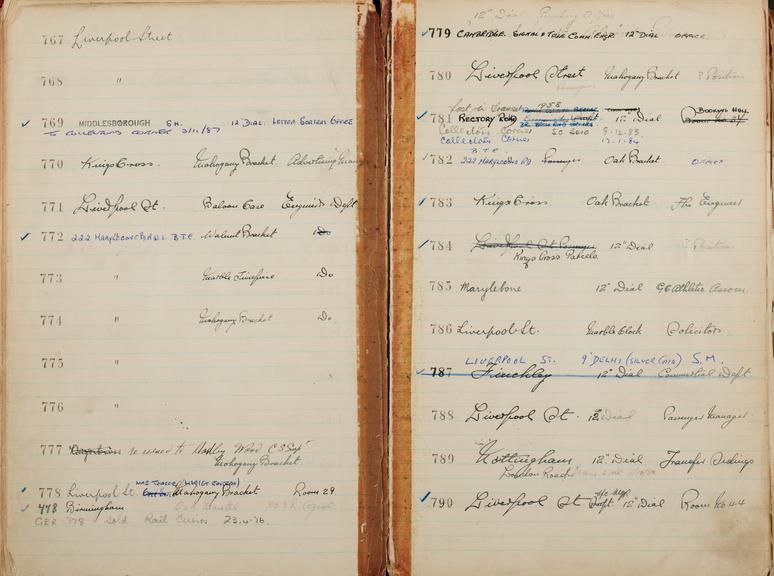 767 Liverpool Street
768 "
769 MIDDLESBOROUGH S.M. 12" DIAL. LETTER SORTERS OFFICE
TO COLLECTORS CORNER 3/11/87
770 Kings Cross. Mahogany Bracket. Advertising
771 Liverpool St. Baloon Case Engineers Dept
772 222 MARYLEBONE RD B.T.C. Walnut Bracket Do
773 " Marble Timepiece Do
774 " Mahogany Bracket Do
775 "
776 "
777 re issued to Mahogany Bracket
778 Liverpool St. Mahogany Bracket Room 29
778 Birmingham
GER 778 Sold Rail Curios 23.4.76.
12" Dial
779 CAMBRIDGE. SIGNAL & TELE COMM. ENGR. 12" DIAL OFFICE
780 Liverpool Street Mahogany Bracket ? Position
Lost in Transit 1958
781 RECTORY ROAD 12" Dial BOOKING HALL
Collectors Corner SC 2010 9.12.83
Collectors Corner 17.1.84
B.T.C.
782 222 MARYLEBONE RD Passenger Oak Bracket OFFICE
783 Kings Cross Oak Bracket The Engineer
784 Liverpool St Passenger 12" Dial ? Position
Kings Cross Parcels
785 Marylebone 12" Dial GC Athletic Assocn.
786 Liverpool St. Marble Clock Solicitors
LIVERPOOL ST. 9" DELHI (SILVER) S.M.
787 Finchley 12" Dial Commercial Dept.
788 Liverpool St. 12" Dial Passenger Manager
789 Nottingham 12" Dial Transfer Sidings
London Road
790 Liverpool St Dept. 12" Dial Room No 44